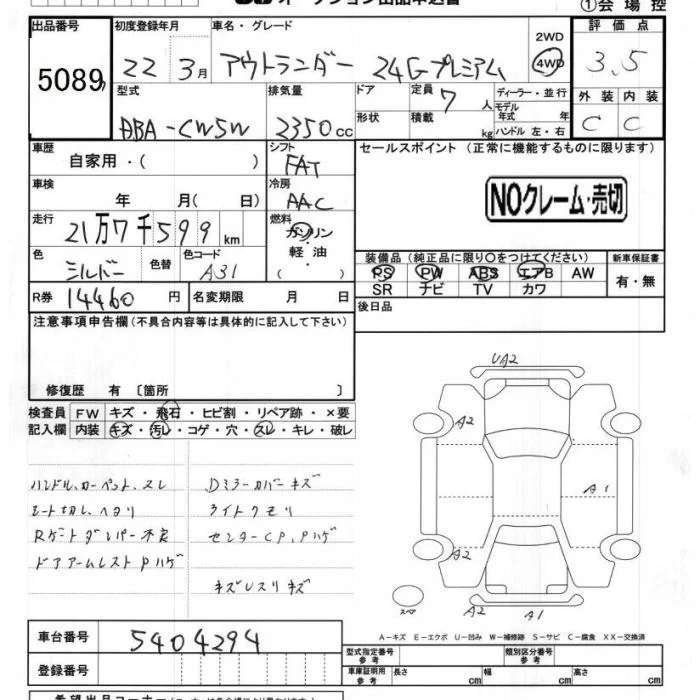 オークション出品申込書
①会場控
出品番号 初度登録年月 車名・グレード 2WD 評価点
5089 22 3月 アウトランダー 24Gプレミアム 4WD 3.5
型式 排気量 ドア 定員 7人 ディーラー・並行 外装 内装
モデル年式 年
DBA-CW5W 2350cc 形状 積載 kg ハンドル 左・右 C C
車歴 自家用・( ) シフト FAT セールスポイント (正常に機能するものに限ります)
車検 年 月( 日) 冷房 AAC NOクレーム・売切
走行 21万7千599km 燃料 ガソリン
軽油
( )
色 シルバー 色替 色コード A31 装備品 (純正品に限り○をつけてください) 新車保証書
PS PW ABS エアB AW 有・無
SR ナビ TV カワ
R券 14460円 名変期限 月 日 後日品
注意事項申告欄(不具合内容等は具体的に記入して下さい)
修復歴 有 〔箇所 〕
検査員 FW キズ・飛石・ヒビ割・リペア跡・×要
記入欄 内装 キズ・汚レ・コゲ・穴・スレ・キレ・破レ
ハンドル、カーペット、スレ Dミラーカバーキズ
シート切レ、ヘタリ ライトクモリ
Rゲートダンパー不良 センターCP、Pハゲ
ドアアームレストPハゲ
キズレスリキズ
UA2
A2
A1
A2
スペア A2 A1
A-キズ E-エクボ U-凹み W-補修跡 S-サビ C-腐食 XX-交換済
車台番号 5404294
登録番号
型式指定番号 参考 類別区分番号 参考
車庫証明用 参考 長さ cm 幅 cm 高さ cm